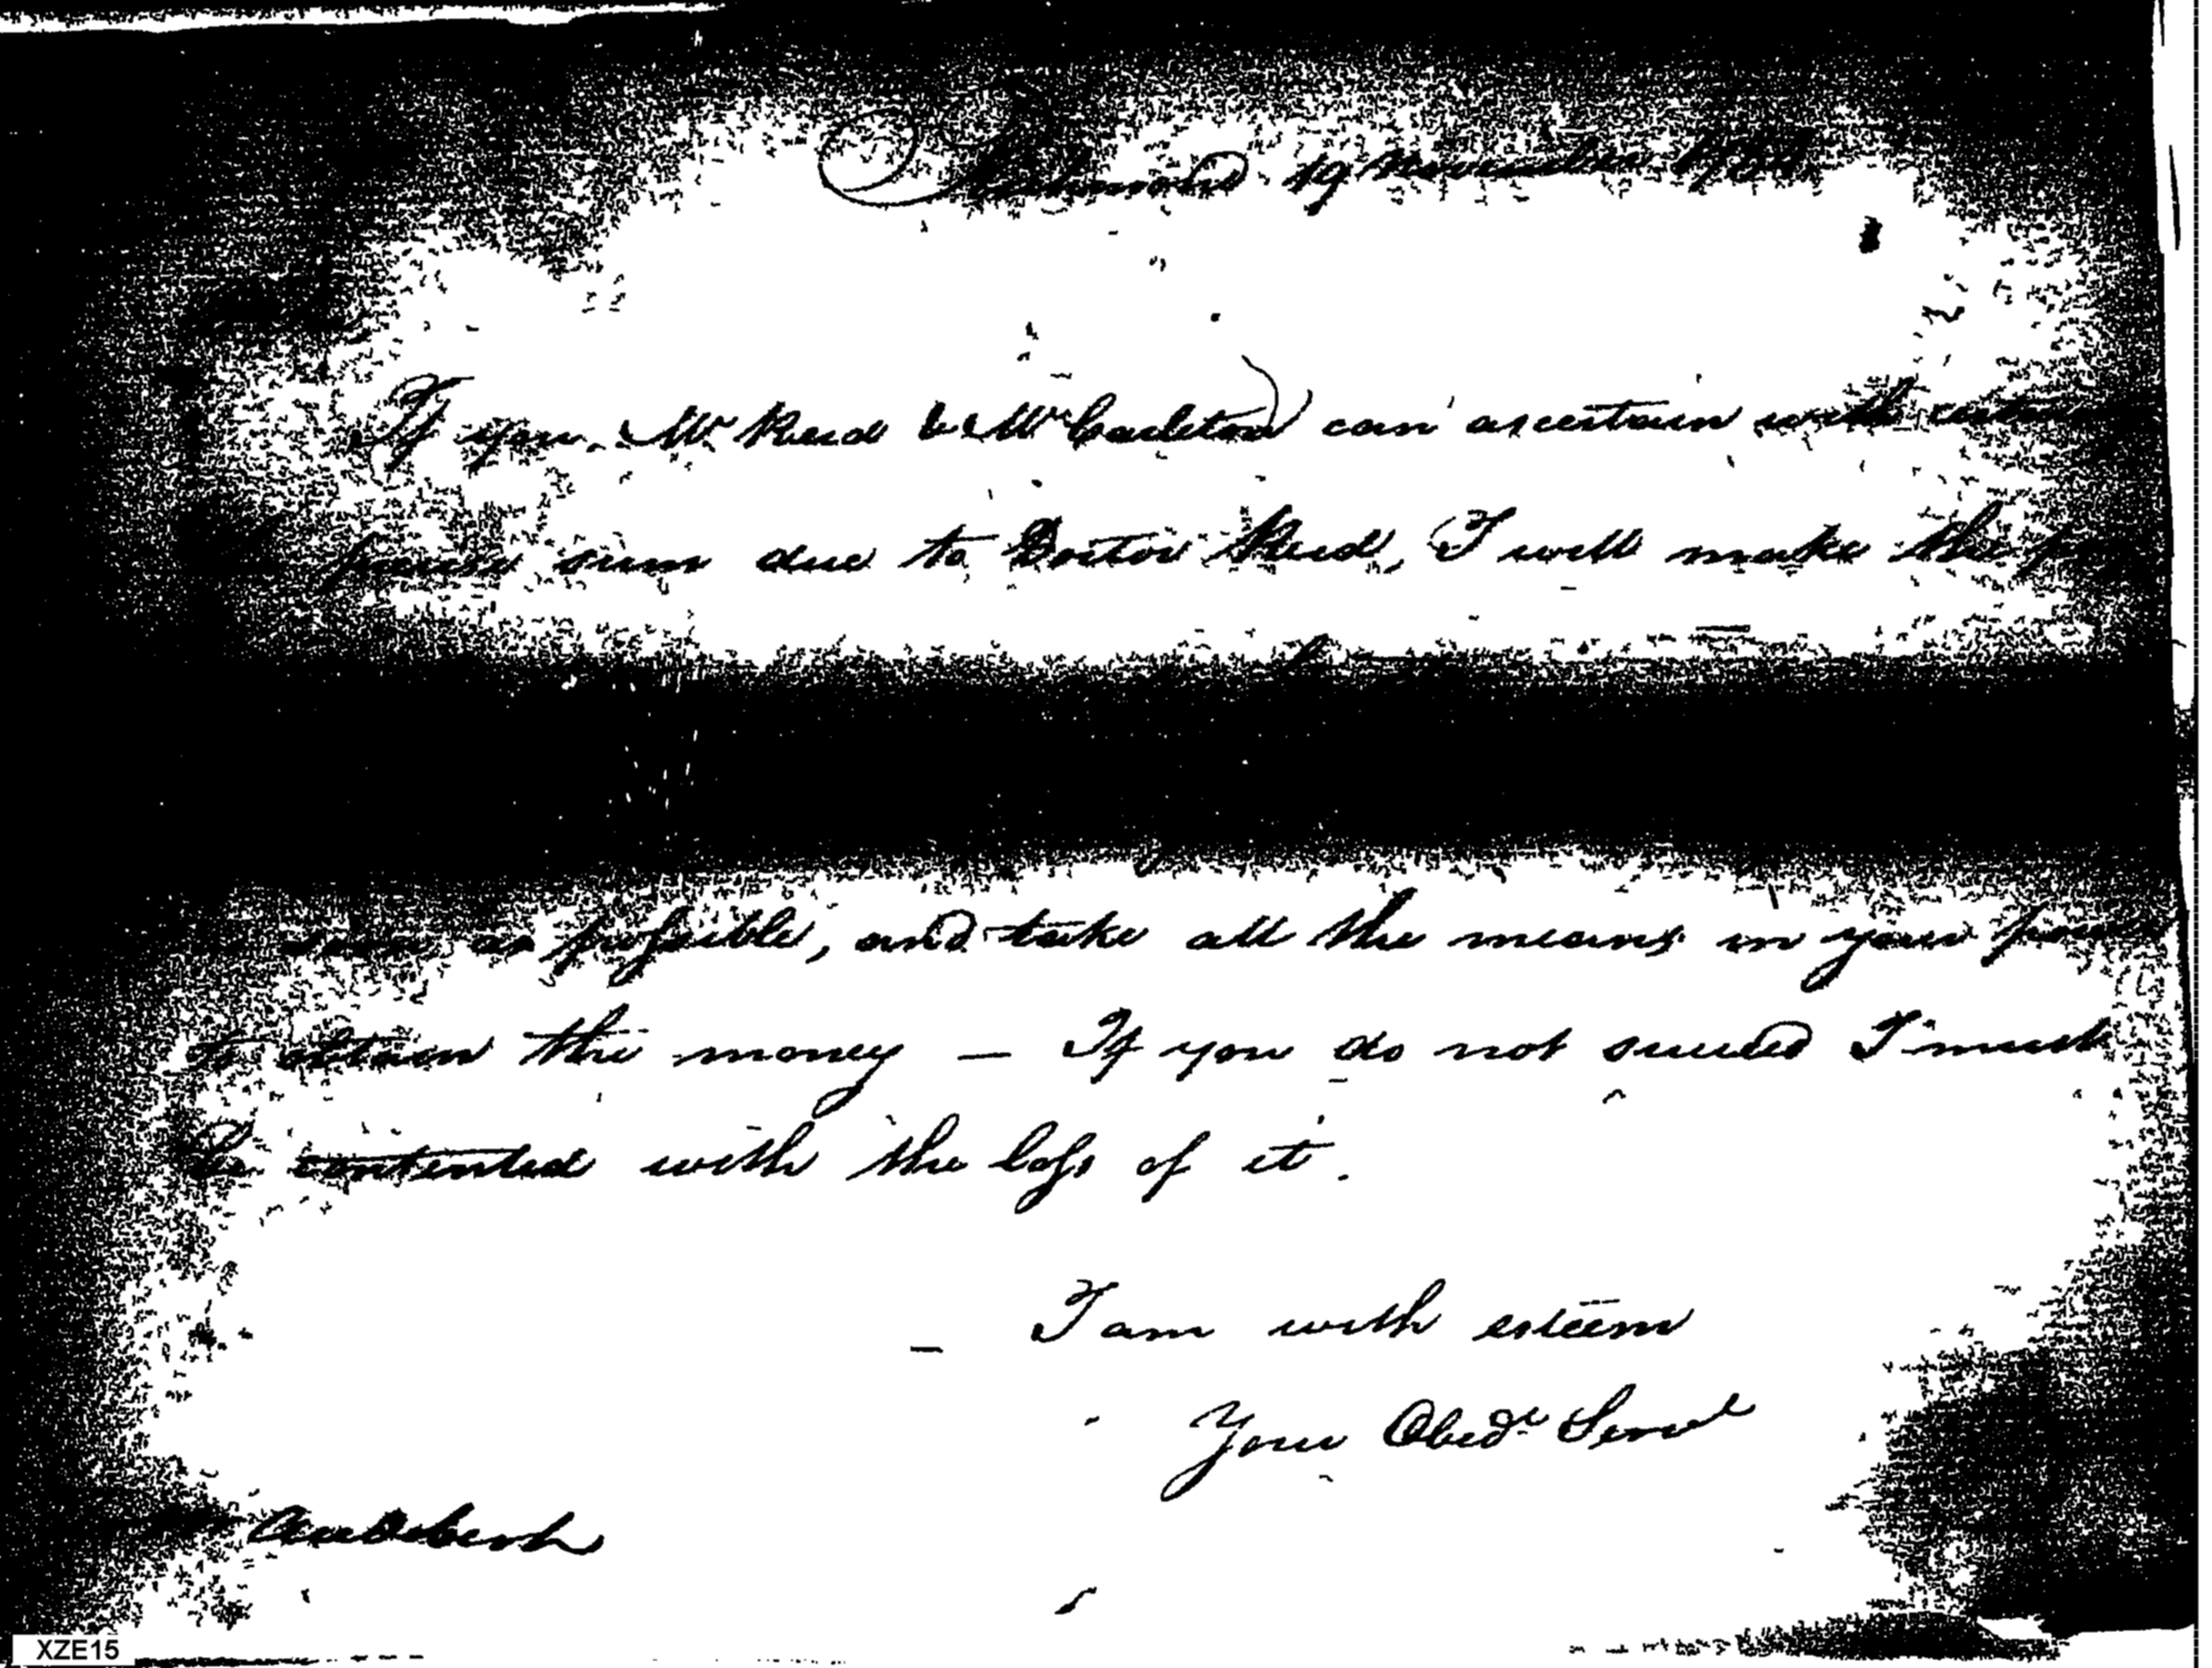 Richmond 19 November
If you Mr. Reid & Mr. Carleton can ascertain with
precise sum due to Doctor Reid, I will make the
soon as possible, and take all the means in your power
to obtain the money — If you do not succeed I must
be contented with the loss of it.
I am with esteem
Your Obedt. Servt
XZE15